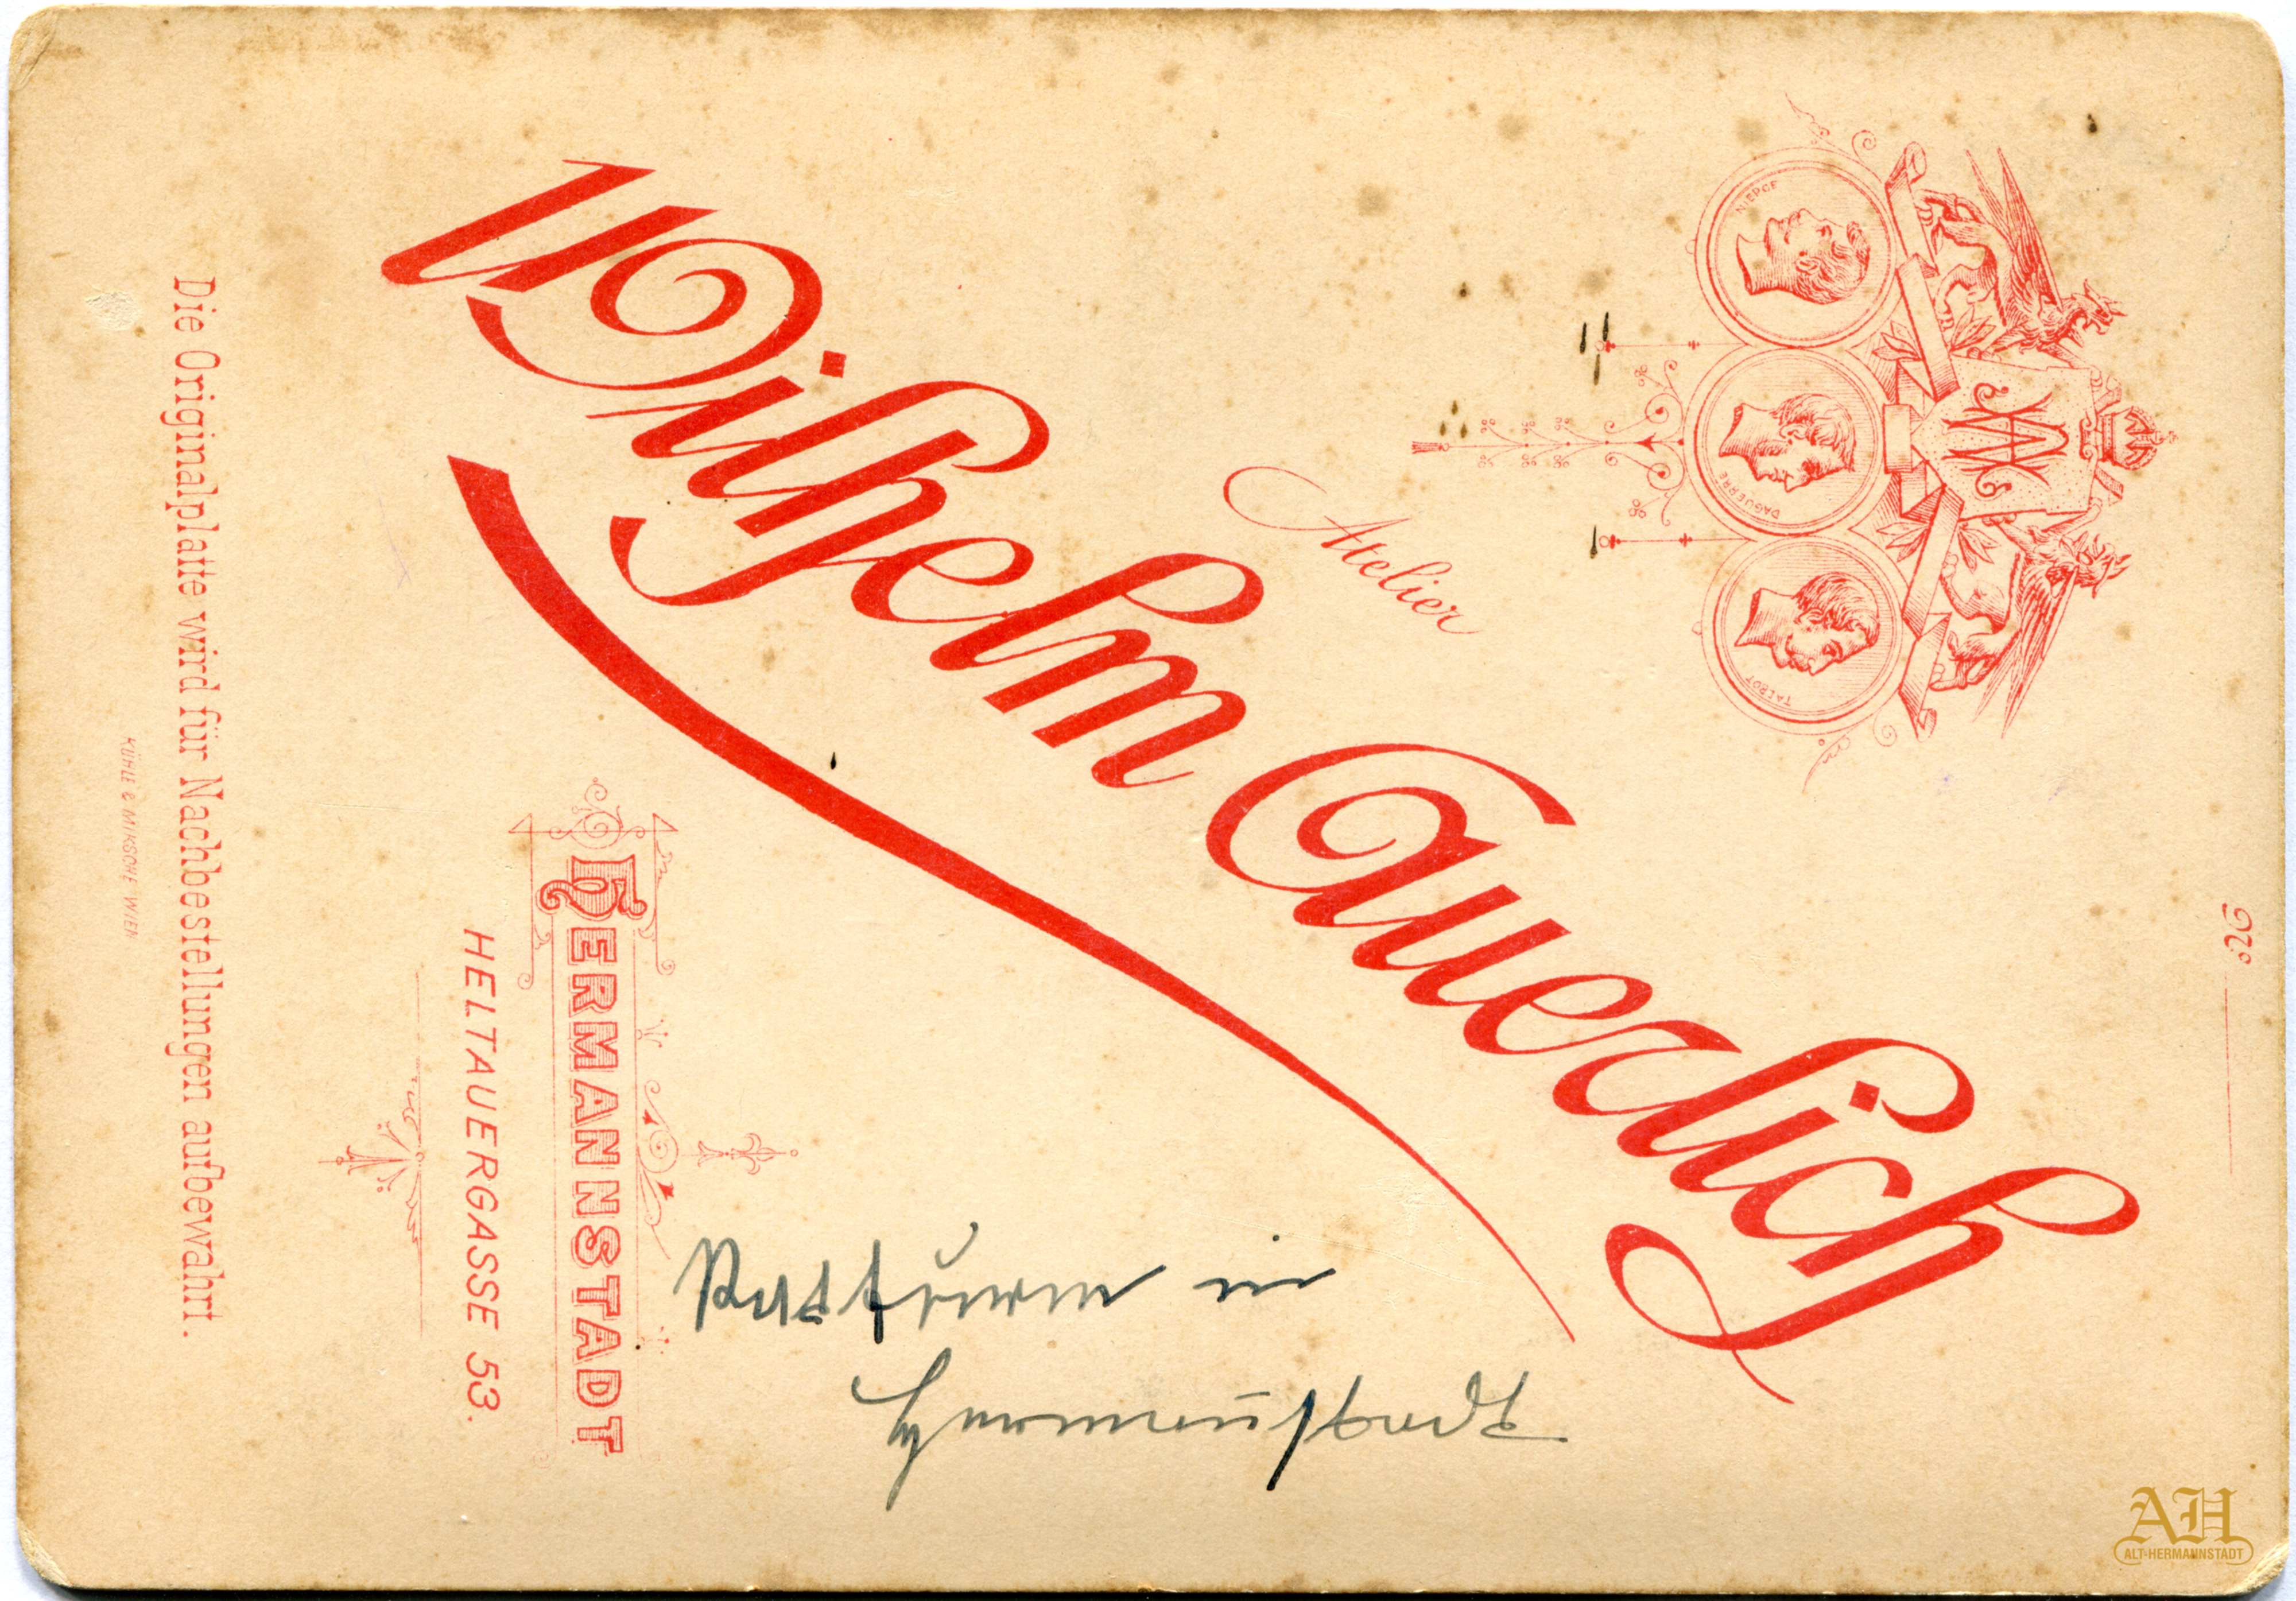 No.
WA
NIEPCE
DAGUERRE
TALBOT
Atelier
Wilhelm Auerlich
HERMANNSTADT
HELTAUERGASSE 53.
Die Originalplatte wird für Nachbestellungen aufbewahrt.
KÜHLE & MIKSCHE WIEN
Ratturm in
Hermannstadt
AH
ALT-HERMANNSTADT